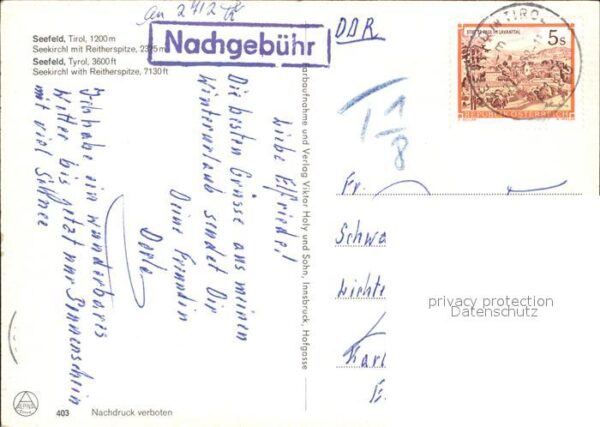 an 2412
Nachgebühr
DDR
Seefeld, Tirol, 1200 m
Seekirchl mit Reitherspitze, 2375 m
Seefeld, Tyrol, 3600 ft
Seekirchl with Reitherspitze, 7130 ft
TIROL
5s
REPUBLIK ÖSTERREICH
T 1/8
Liebe Elfriede!
Die besten Grüsse aus meinem
Winterurlaub sendet Dir
Deine Freundin
Dorle
Ich habe ein wunderbares
Wetter bis jetzt nur Sonnenschein
mit viel Schnee
Farbaufnahme und Verlag Viktor Holy und Sohn, Innsbruck, Hofgasse
Fr.
Schwa
Lichte
Karl
privacy protection
Datenschutz
403 Nachdruck verboten